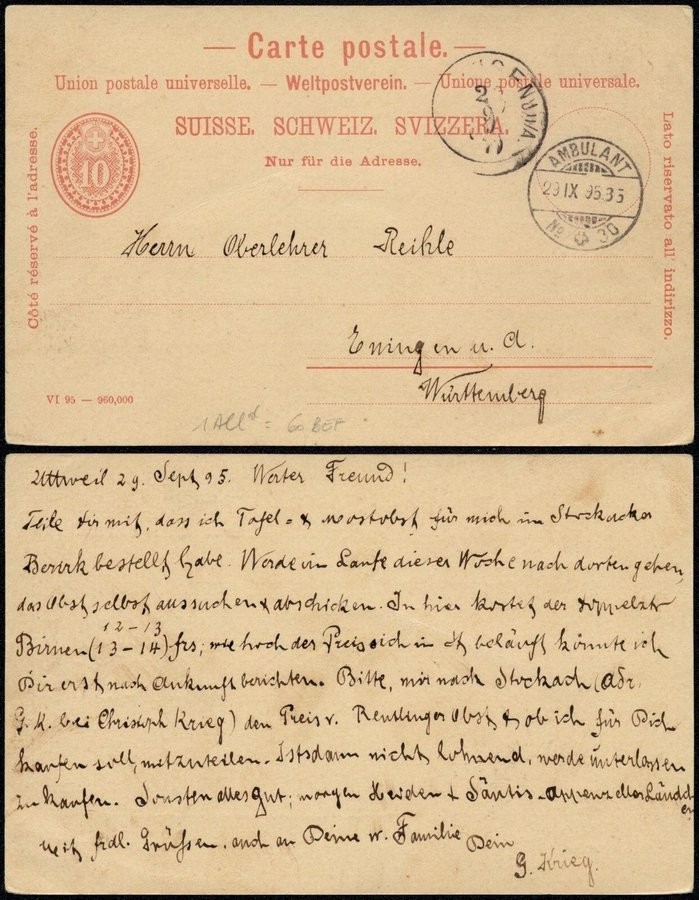 — Carte postale. —
Union postale universelle. — Weltpostverein. — Unione postale universale.
SUISSE. SCHWEIZ. SVIZZERA.
Nur für die Adresse.
Côté réservé à l'adresse.
Lato riservato all' indirizzo.
10
AMBULANT
29 IX 95
No 30
Herrn Oberlehrer Reihle
Eningen u. A.
Württemberg
VI 95 — 960,000
Uttweil 29. Sept 95. Werter Freund!
Teile dir mit, dass ich Tafel- & Mostobst für mich im Stockacher
Bezirk bestellt habe. Werde im Laufe dieser Woche nach dorten gehen,
das Obst selbst aussuchen & abschicken. In hier kostet der Doppelztr
12 – 13
Birnen (13 – 14) frs; wie hoch der Preis sich in St beläuft könnte ich
Dir erst nach Ankunft berichten. Bitte, mir nach Stockach (adr.
G. K. bei Christoph Krieg) den Preis v. Reutlinger Obst & ob ich für Dich
kaufen soll, mitzuteilen. Ists dann nicht lohnend, werde unterlassen
zu kaufen. Sonsten alles gut; morgen Heiden & Säntis - appenzeller Ländchen
mit frdl. Grüssen, auch an Deine w. Familie Dein
G. Krieg.